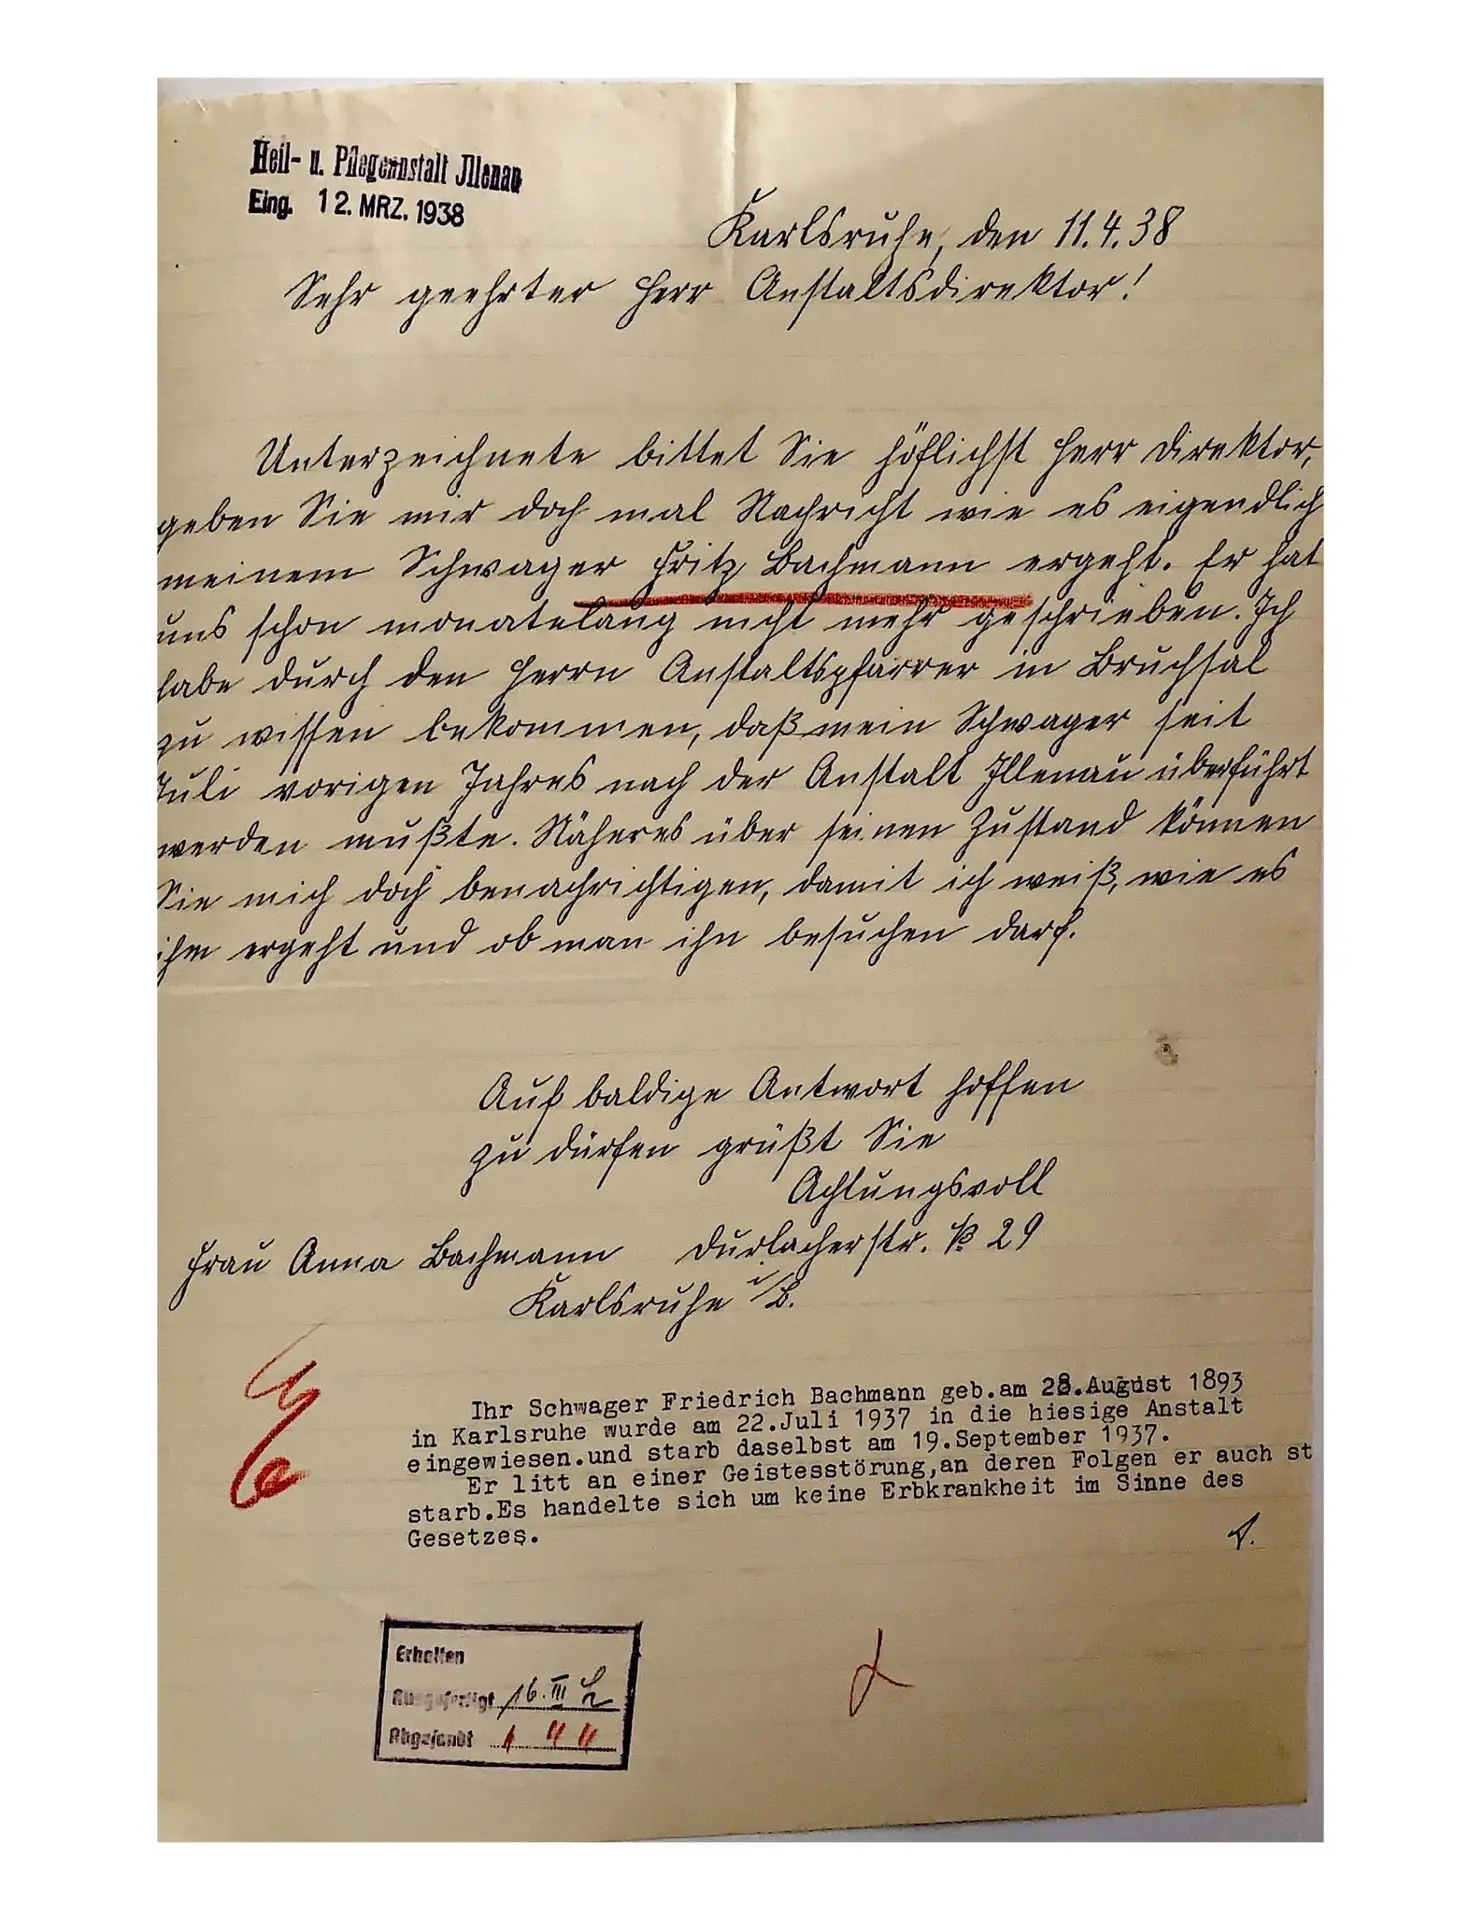 Heil- u. Pflegeanstalt Jllenau
Eing. 12. MRZ. 1938
Karlsruhe, den 11.4.38
Sehr geehrter Herr Anstaltsdirektor!
Unterzeichnete bittet Sie höflichst Herr Direktor,
geben Sie mir doch mal Nachricht wie es eigendlich
meinem Schwager Fritz Bachmann ergeht. Er hat
uns schon monatelang nicht mehr geschrieben. Ich
habe durch den Herrn Anstaltspfarrer in Bruchsal
zu wissen bekommen, daß mein Schwager seit
Juli vorigen Jahres nach der Anstalt Jllenau überführt
werden mußte. Näheres über seinen Zustand können
Sie mich doch benachrichtigen, damit ich weiß, wie es
ihm ergeht und ob man ihn besuchen darf.
Auf baldige Antwort hoffen
zu dürfen grüßt Sie
Achtungsvoll
Frau Anna Bachmann Durlacherstr. 29
Karlsruhe i/B.
Ihr Schwager Friedrich Bachmann geb.am 28.August 1893
in Karlsruhe wurde am 22.Juli 1937 in die hiesige Anstalt
eingewiesen.und starb daselbst am 19.September 1937.
Er litt an einer Geistesstörung,an deren Folgen er auch st
starb.Es handelte sich um keine Erbkrankheit im Sinne des
Gesetzes.
Erhalten
Ausgefertigt 16.III
Abgesandt